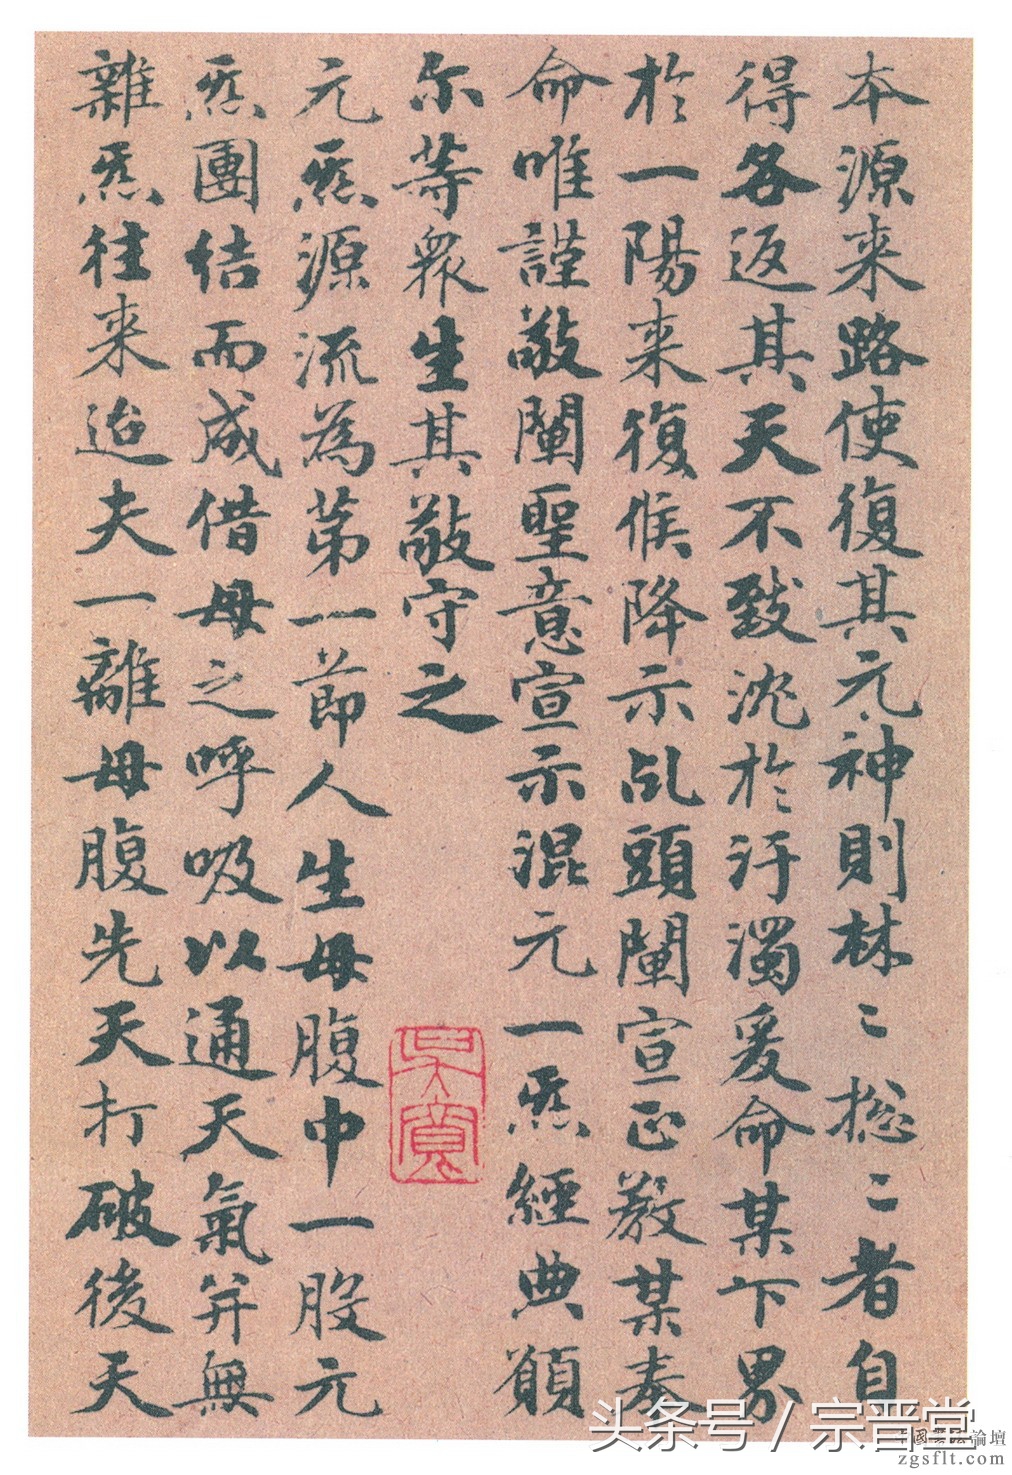 本源来路使復其元神則林〻揔〻者自
得各返其天不致沈於汙濁爰命某下界
於一陽来復候降示乩頭闡宣正教某奏
命唯謹敬闡聖意宣示混元一炁經典願
尔等衆生其敬守之
元炁源流為苐一節人生母腹中一股元
炁團结而成借母之呼吸以通天氣并無
雜炁往来迨夫一離母腹先天打破後天
头条号 / 宗晋堂
論壇
zgsflt.com